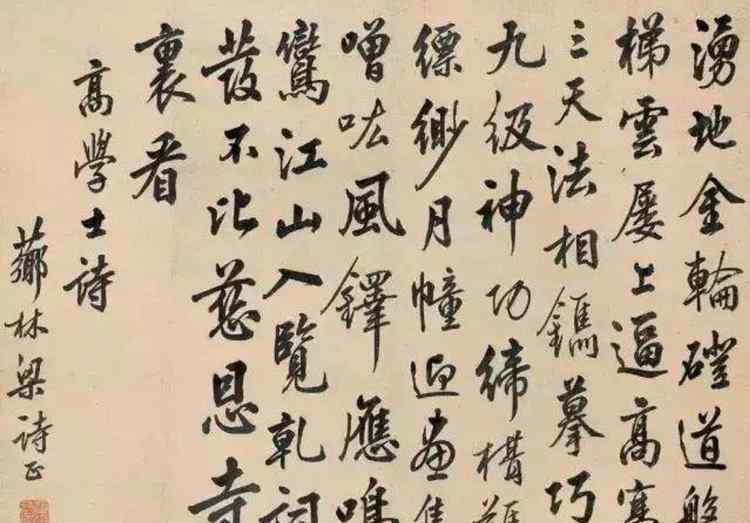 湧地金輪磴道盤
梯雲屢上逼高寒
三天法相鐫摹巧
九級神功締構難
縹緲月幢迎畫
噌吰風鐸應鳴
鸞江山入覽乾詞
發不比慈恩寺
裏看
高學士詩
薌林梁詩正